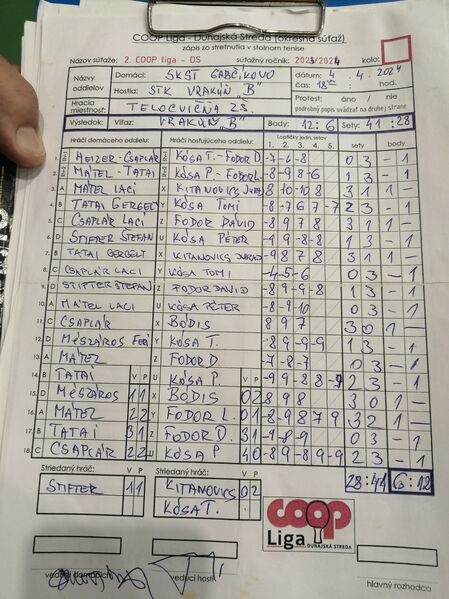 COOP Liga - Dunajská Streda (okresná súťaž)
zápis zo stretnutia v stolnom tenise
Názov súťaže: 2. COOP liga - DS súťažný ročník: 2023/2024 kolo:
Názvy oddielov Domáci: ŠKST GABČÍKOVO dátum: 4. 4. 2024
Hostia: STK VRAKÚŇ "B" čas: 18
Hracia miestnosť: TELOCVIČŇA ZŠ. Protest: áno / nie
podrobný popis uvádzať na druhej strane
Výsledok: Víťaz: VRAKÚŇ "B" Body: 12:6 Sety: 41:28
Hráči domáceho oddielu: Hráči hosťujúceho oddielu: Loptičky jedn.setov 1. 2. 3. 4. 5. sety body
1. HEIZER-CSAPLÁR KÓSA T.-FODOR D. -7-6-8 0 3 - 1
2. MÁTEL-TATAI KÓSA P.-FODOR L. -8-9 8-6 1 3 - 1
3. A MÁTEL LACI X KITANOVICS JURAJ 8 -10 -10 8 3 1 1 -
4. B TATAI GERGELY Y KÓSA TOMI -8-7 6 7-7 2 3 - 1
5. C CSAPLÁR LACI Z FODOR DÁVID -8 9 7 8 3 1 1 -
6. D STIFTER ŠTEFAN U KÓSA PÉTER -9 9-8-8 1 3 - 1
7. B TATAI GERGELY X KITANOVICS JURAJ -9 8 7 8 3 1 1 -
8. C CSAPLÁR LACI Y KÓSA TOMI -4-5-6 0 3 - 1
9. D STIFTER ŠTEFAN Z FODOR DAVID -8 9-9-8 1 3 - 1
10. A MÁTEL LACI U KÓSA PÉTER -8-9-10 0 3 - 1
11. C CSAPLÁR X BÓDIS 8 9 7 3 0 1 -
12. D MÉSZÁROS FERI Y KÓSA T. -8 9-9-9 1 3 - 1
13. A MÁTEL Z FODOR D. -7-8-7 0 3 - 1
14. B TATAI V P U KÓSA P. V P -9 9-8 8-9 2 3 - 1
15. D MÉSZÁROS 1 1 X BÓDIS 0 2 8 9 8 3 0 1 -
16. A MÁTEL 2 2 Y FODOR L. 0 1 -8-9 8 7 9 3 2 1 -
17. B TATAI 3 1 Z FODOR D. 3 1 -9-8-9 0 3 - 1
18. C CSAPLÁR 2 2 U KÓSA P 4 0 -8 9-8 9-9 2 3 - 1
Striedaný hráč: V P Striedaný hráč: V P 28:41 6:12
STIFTER 1 1 KITANOVICS 0 2
KÓSA T.
coop
Liga DUNAJSKÁ STREDA
vedúci domácich vedúci hostí hlavný rozhodca